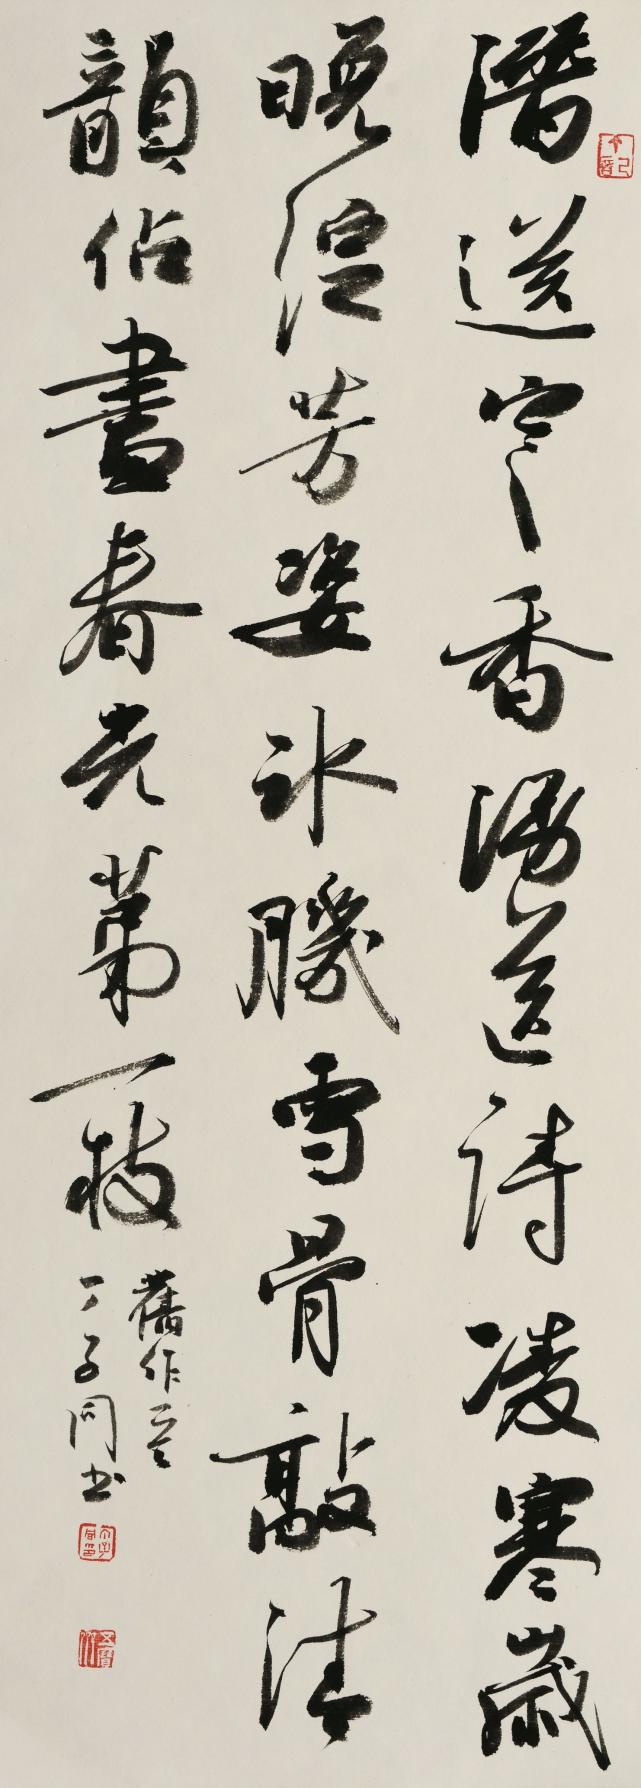 潛送香漫詩凌寒歲
晚綻芳姿冰肌雪骨敲清
韻佔盡春光第一枝
舊作一首
丁子同书